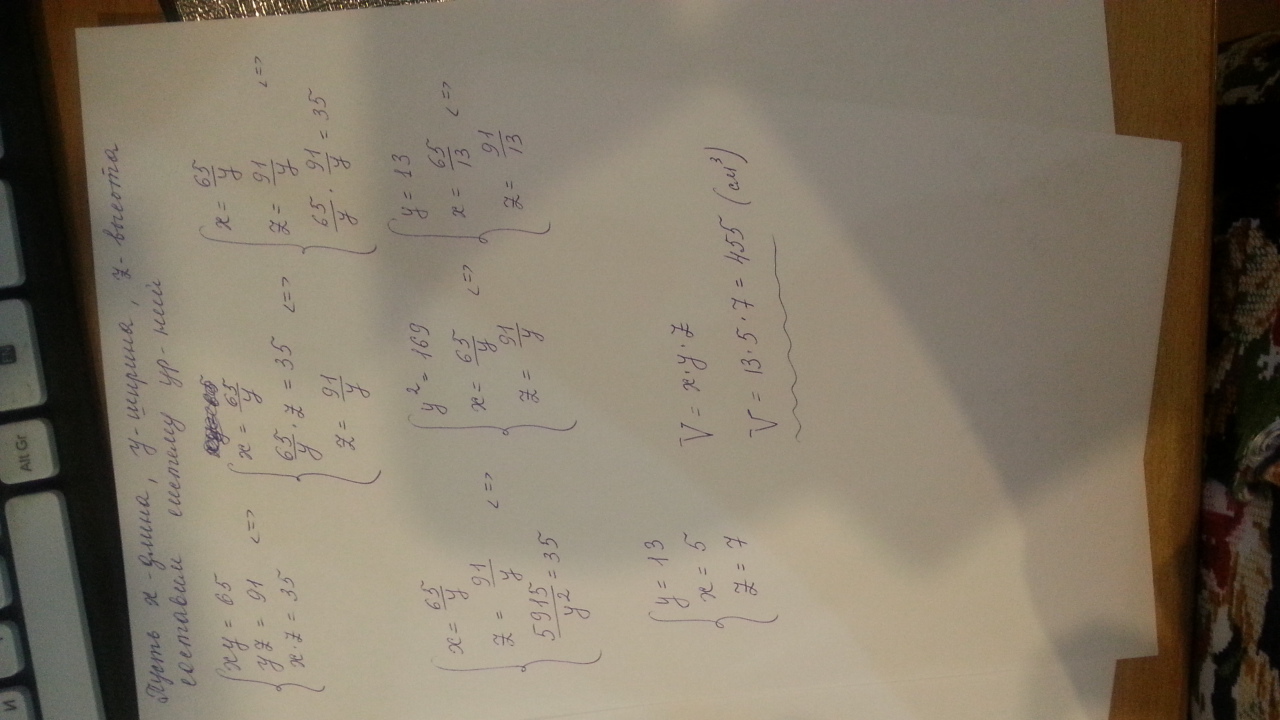 Пусть x-длина, y-ширина, z-высота
составим систему ур-ний
{xy = 65
yz = 91
x·z = 35 <=>
{x = 65/y
65/y · z = 35
z = 91/y <=>
{x = 65/y
z = 91/y
65/y · 91/y = 35 <=>
{x = 65/y
z = 91/y
5915/y² = 35 <=>
{y² = 169
x = 65/y
z = 91/y <=>
{y = 13
x = 65/13
z = 91/13 <=>
{y = 13
x = 5
z = 7
V = x·y·z
V = 13·5·7 = 455 (см³)
Alt Gr
И